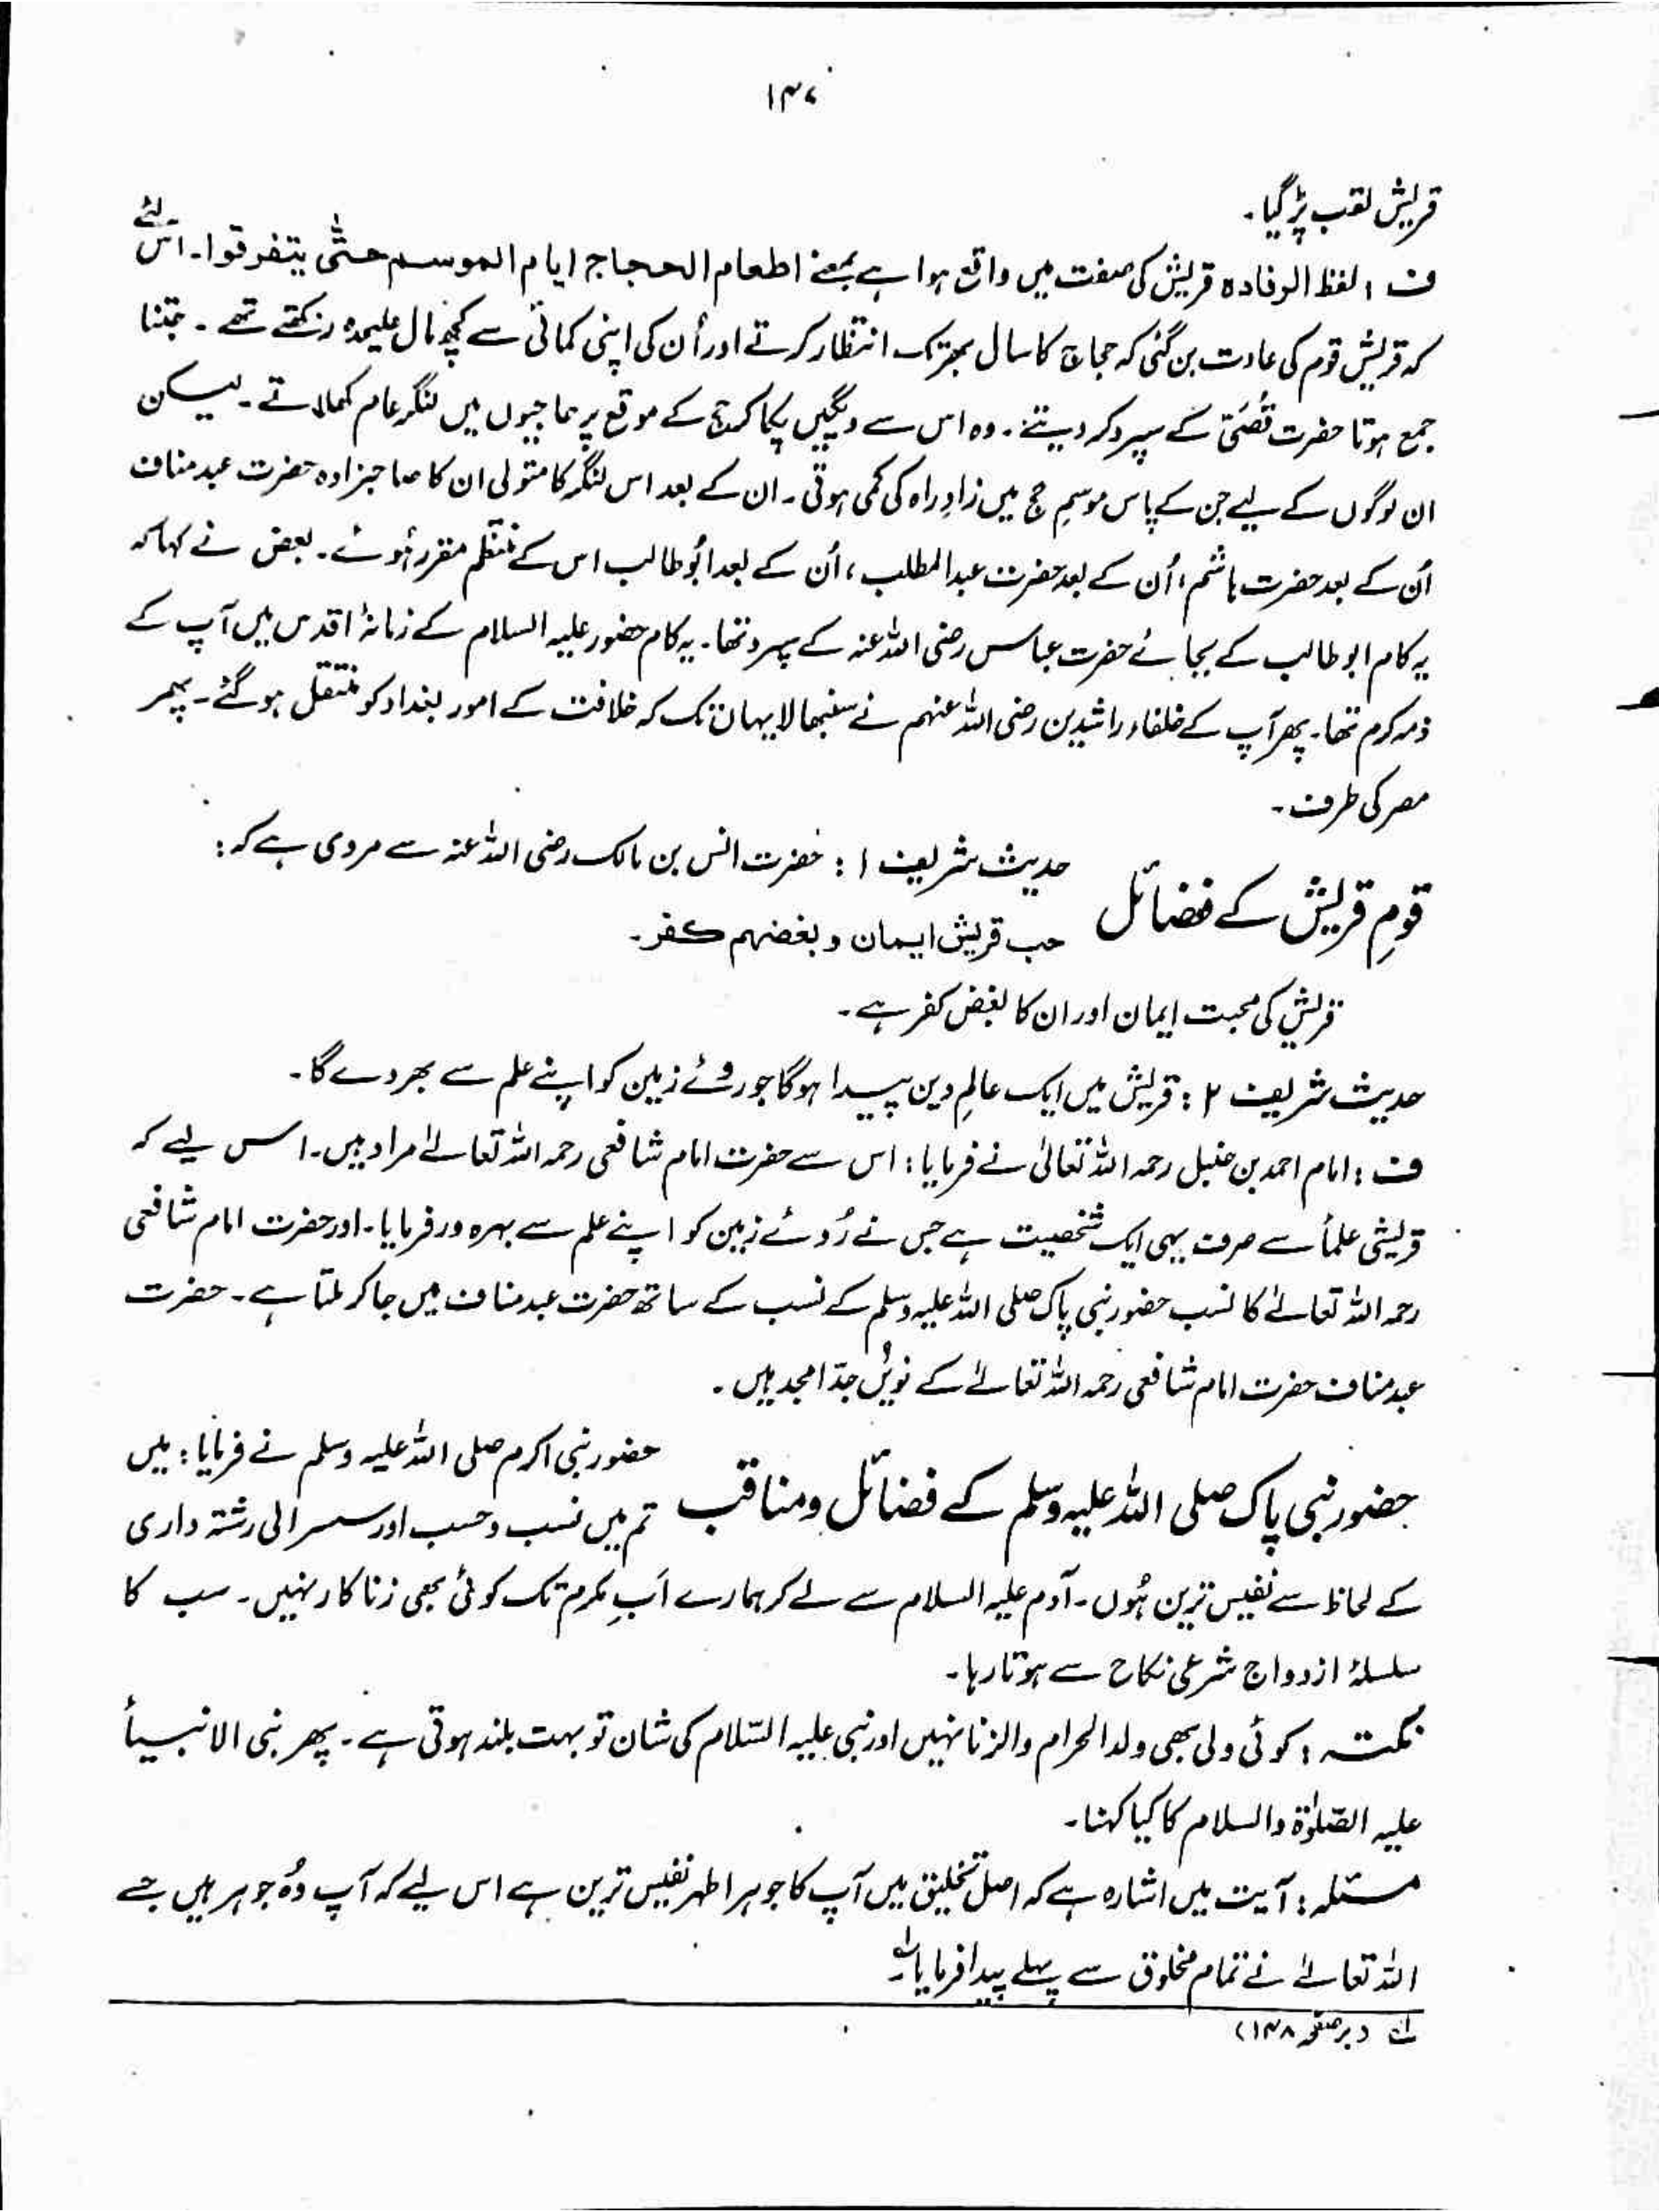 ۱۳۷
قریش لقب پڑ گیا۔
ف : لفظ الرفادہ قریش کی صفت میں واقع ہوا ہے بمعنے اطعام الحجاج ایام الموسم حتّٰی یتفرقوا۔ اس لئے
کہ قریش قوم کی عادت بن گئی کہ حجاج کا سال بھر تک انتظار کرتے اور اُن کی اپنی کمائی سے کچھ مال علیحدہ رکھتے تھے ۔ جتنا
جمع ہوتا حضرت قُصَیّ کے سپرد کر دیتے ۔ وہ اس سے دیگیں پکا کر حج کے موقع پر حاجیوں میں لنگر عام کھلاتے ۔ لیکن
ان لوگوں کے لیے جن کے پاس موسمِ حج میں زادِ راہ کی کمی ہوتی ۔ ان کے بعد اس لنگر کا متولی ان کا صاحبزادہ حضرت عبد مناف
اُن کے بعد حضرت ہاشم ، اُن کے بعد حضرت عبدالمطلب ، اُن کے بعد ابُو طالب اس کے منتظم مقرر ہُوئے ۔ بعض نے کہا کہ
یہ کام ابو طالب کے بجائے حضرت عباس رضی اللہ عنہ کے سپرد تھا ۔ یہ کام حضور علیہ السلام کے زمانۂ اقدس میں آپ کے
ذمہ کرم تھا ۔ پھر آپ کے خلفاء راشدین رضی اللہ عنہم نے سنبھالا یہاں تک کہ خلافت کے امور بغداد کو منتقل ہو گئے ۔ پھر
مصر کی طرف ۔
قومِ قریش کے فضائل
حدیث شریف ۱ : حضرت انس بن مالک رضی اللہ عنہ سے مروی ہے کہ :
حب قریش ایمان و بغضہم کفر ۔
قریش کی محبت ایمان اور ان کا بغض کفر ہے ۔
حدیث شریف ۲ : قریش میں ایک عالمِ دین پیدا ہوگا جو روئے زمین کو اپنے علم سے بھر دے گا ۔
ف : امام احمد بن حنبل رحمہ اللہ تعالیٰ نے فرمایا : اس سے حضرت امام شافعی رحمہ اللہ تعالےٰ مراد ہیں ۔ اس لیے کہ
قریشی علمأ سے صرف یہی ایک شخصیت ہے جس نے رُوئے زمین کو اپنے علم سے بہرہ ور فرمایا ۔ اور حضرت امام شافعی
رحمہ اللہ تعالےٰ کا نسب حضور نبی پاک صلی اللہ علیہ وسلم کے نسب کے ساتھ حضرت عبد مناف میں جا کر ملتا ہے ۔ حضرت
عبد مناف حضرت امام شافعی رحمہ اللہ تعالےٰ کے نویں جدّ امجد ہیں ۔
حضور نبی پاک صلی اللہ علیہ وسلم کے فضائل و مناقب
حضور نبی اکرم صلی اللہ علیہ وسلم نے فرمایا : میں
تم میں نسب و حسب اور سسرالی رشتہ داری
کے لحاظ سے نفیس ترین ہُوں ۔ آدم علیہ السلام سے لے کر ہمارے اَبِ مکرم تک کوئی بھی زنا کار نہیں ۔ سب کا
سلسلۂ ازدواج شرعی نکاح سے ہوتا رہا ۔
نکتہ : کوئی ولی بھی ولد الحرام والزنا نہیں اور نبی علیہ السّلام کی شان تو بہت بلند ہوتی ہے ۔ پھر نبی الانبیأ
علیہ الصّلوٰۃ والسلام کا کیا کہنا ۔
مسئلہ : آیت میں اشارہ ہے کہ اصل تخلیق میں آپ کا جوہر اطہر نفیس ترین ہے اس لیے کہ آپ وُہ جوہر ہیں جسے
اللہ تعالےٰ نے تمام مخلوق سے پہلے پیدا فرمایا ۔ لہ
لہ ( بر صفحہ ۱۳۸ )